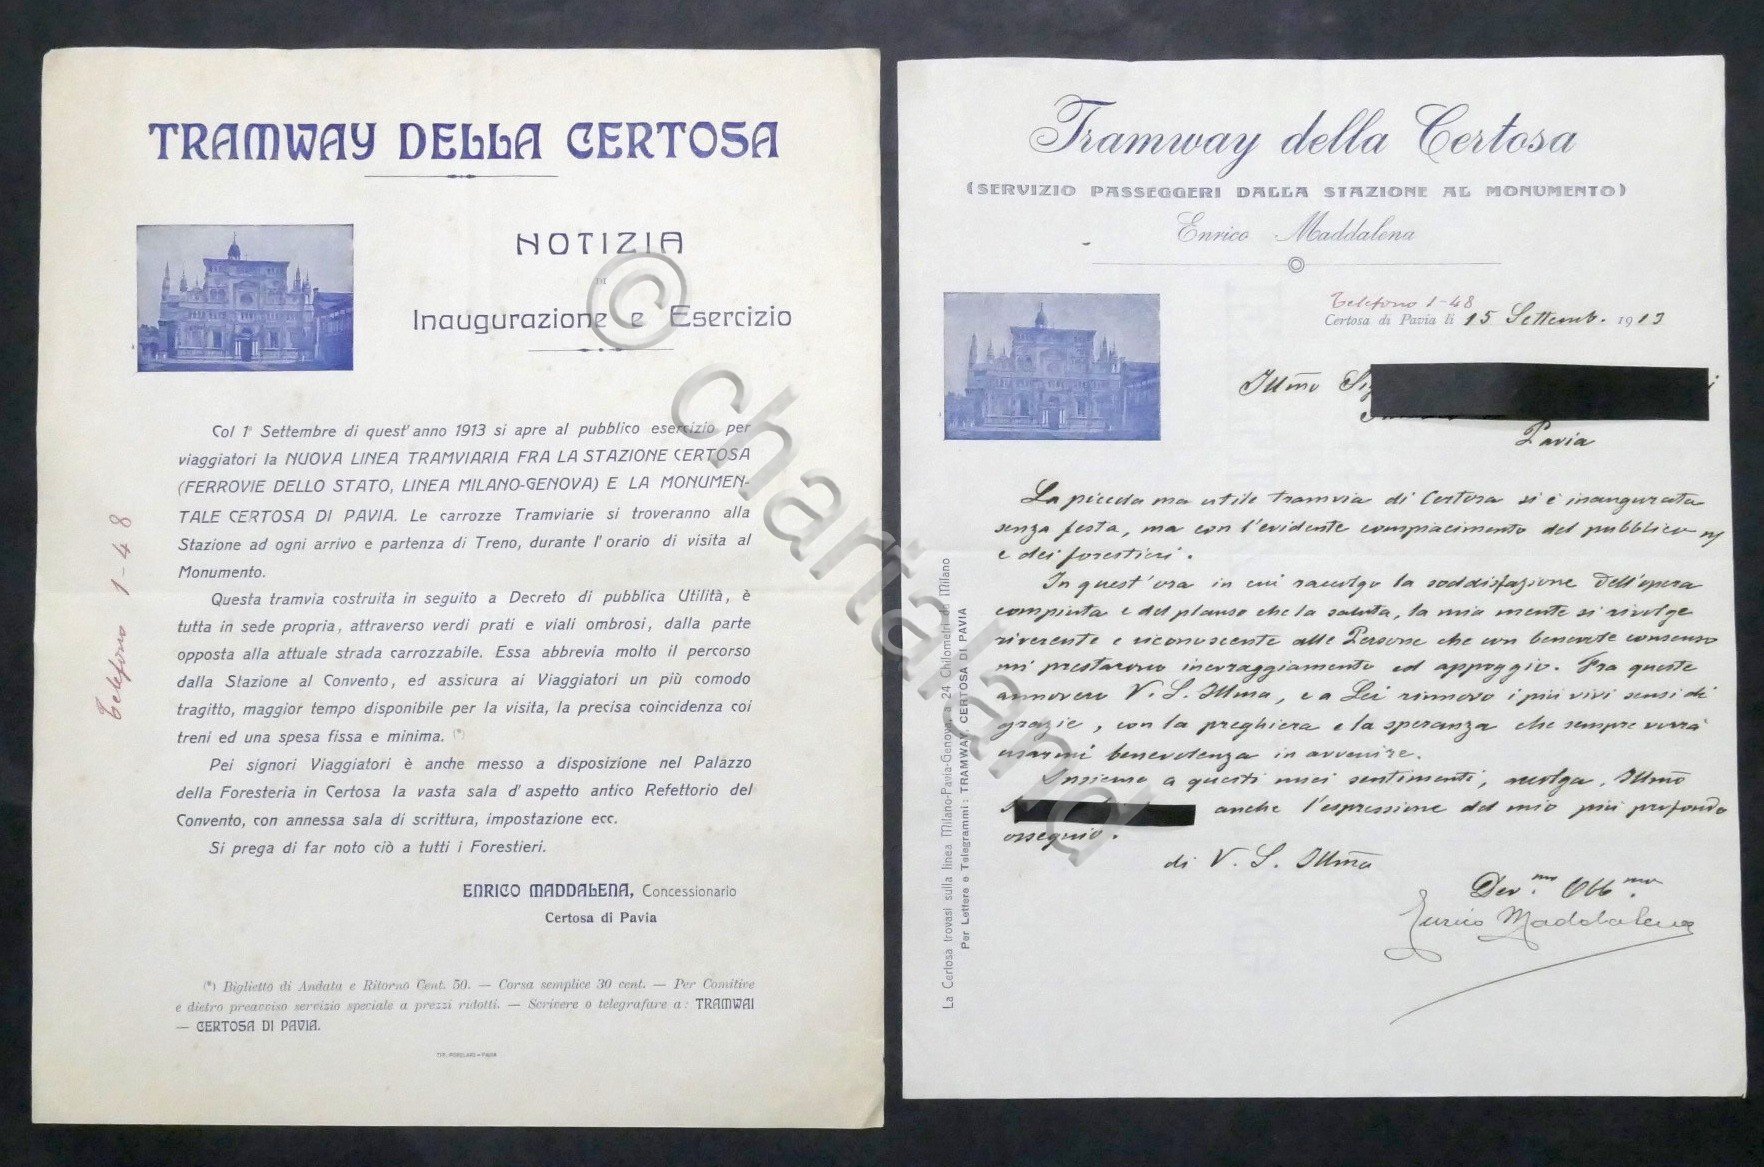 TRAMWAY DELLA CERTOSA
NOTIZIA
DI
Inaugurazione e Esercizio
Col 1º Settembre di quest'anno 1913 si apre al pubblico esercizio per
viaggiatori la NUOVA LINEA TRAMVIARIA FRA LA STAZIONE CERTOSA
(FERROVIE DELLO STATO, LINEA MILANO-GENOVA) E LA MONUMEN-
TALE CERTOSA DI PAVIA. Le carrozze Tramviarie si troveranno alla
Stazione ad ogni arrivo e partenza di Treno, durante l'orario di visita al
Monumento.
Questa tramvia costruita in seguito a Decreto di pubblica Utilità, è
tutta in sede propria, attraverso verdi prati e viali ombrosi, dalla parte
opposta alla attuale strada carrozzabile. Essa abbrevia molto il percorso
dalla Stazione al Convento, ed assicura ai Viaggiatori un più comodo
tragitto, maggior tempo disponibile per la visita, la precisa coincidenza coi
treni ed una spesa fissa e minima. (*)
Pei signori Viaggiatori è anche messo a disposizione nel Palazzo
della Foresteria in Certosa la vasta sala d'aspetto antico Refettorio del
Convento, con annessa sala di scrittura, impostazione ecc.
Si prega di far noto ciò a tutti i Forestieri.
ENRICO MADDALENA, Concessionario
Certosa di Pavia
(*) Biglietto di Andata e Ritorno Cent. 50. — Corsa semplice 30 cent. — Per Comitive
e dietro preavviso servizio speciale a prezzi ridotti. — Scrivere o telegrafare a: TRAMWAI
— CERTOSA DI PAVIA.
TIP. POPOLARI - PAVIA
Telefono 1-48
Tramway della Certosa
(SERVIZIO PASSEGGERI DALLA STAZIONE AL MONUMENTO)
Enrico Maddalena
Telefono 1-48
Certosa di Pavia li 15 Settemb. 1913
Illmo Sig
Pavia
La piccola ma utile tramvia di Certosa si è inaugurata
senza festa, ma con l'evidente compiacimento del pubblico
e dei forestieri.
In quest'ora in cui raccolgo la soddisfazione dell'opera
compiuta e del plauso che la saluta, la mia mente si rivolge
riverente e riconoscente alle Persone che con benevole consenso
mi prestarono incoraggiamento ed appoggio. Fra queste
annovero V. S. Illma, e a Lei rinnovo i più vivi sensi di
grazie, con la preghiera e la speranza che sempre vorrà
usarmi benevolenza in avvenire.
Insieme a questi miei sentimenti, accolga, Illmo
anche l'espressione del mio più profondo
ossequio.
di V. S. Illma
Dev.mo Obb.mo
Enrico Maddalena
La Certosa trovasi sulla linea Milano-Pavia-Genova a 24 Chilometri da Milano
Per Lettere e Telegrammi: TRAMWAY, CERTOSA DI PAVIA
© chartaland